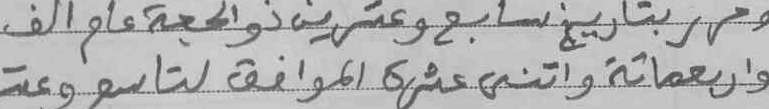 وحرر بتاريخ سابع وعشرين ذو الحجة عام الف
واربعمائة واتنى عشرة الموافق لتاسع وعت